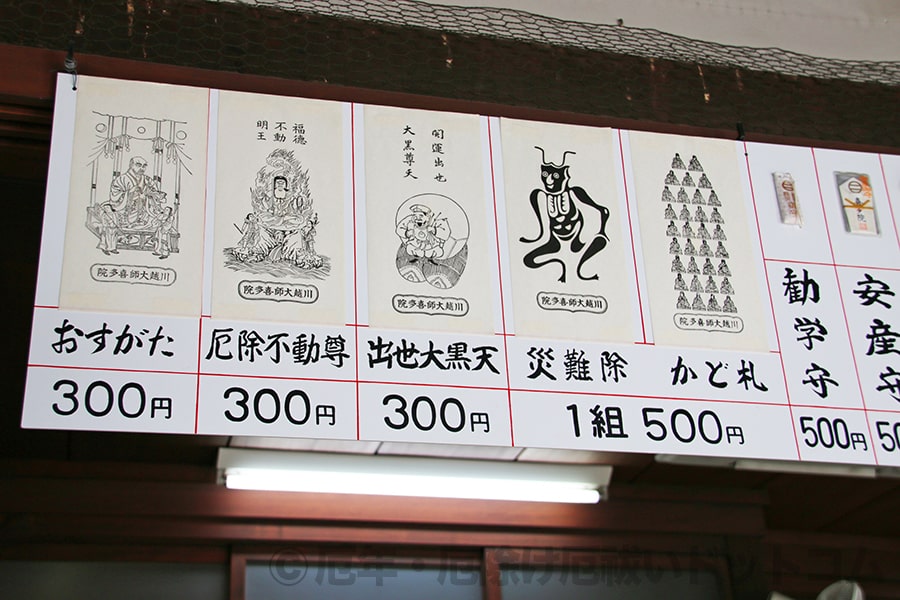 院多喜師大越川
おすがた
300円
福徳
不動
明王
院多喜師大越川
厄除不動尊
300円
開運出世
大黒尊天
院多喜師大越川
出世大黒天
300円
院多喜師大越川
院多喜師大越川
災難除 かど札
1組 500円
勧学守
500円
安産守
50
©厄年・厄除け厄祓いドットコム